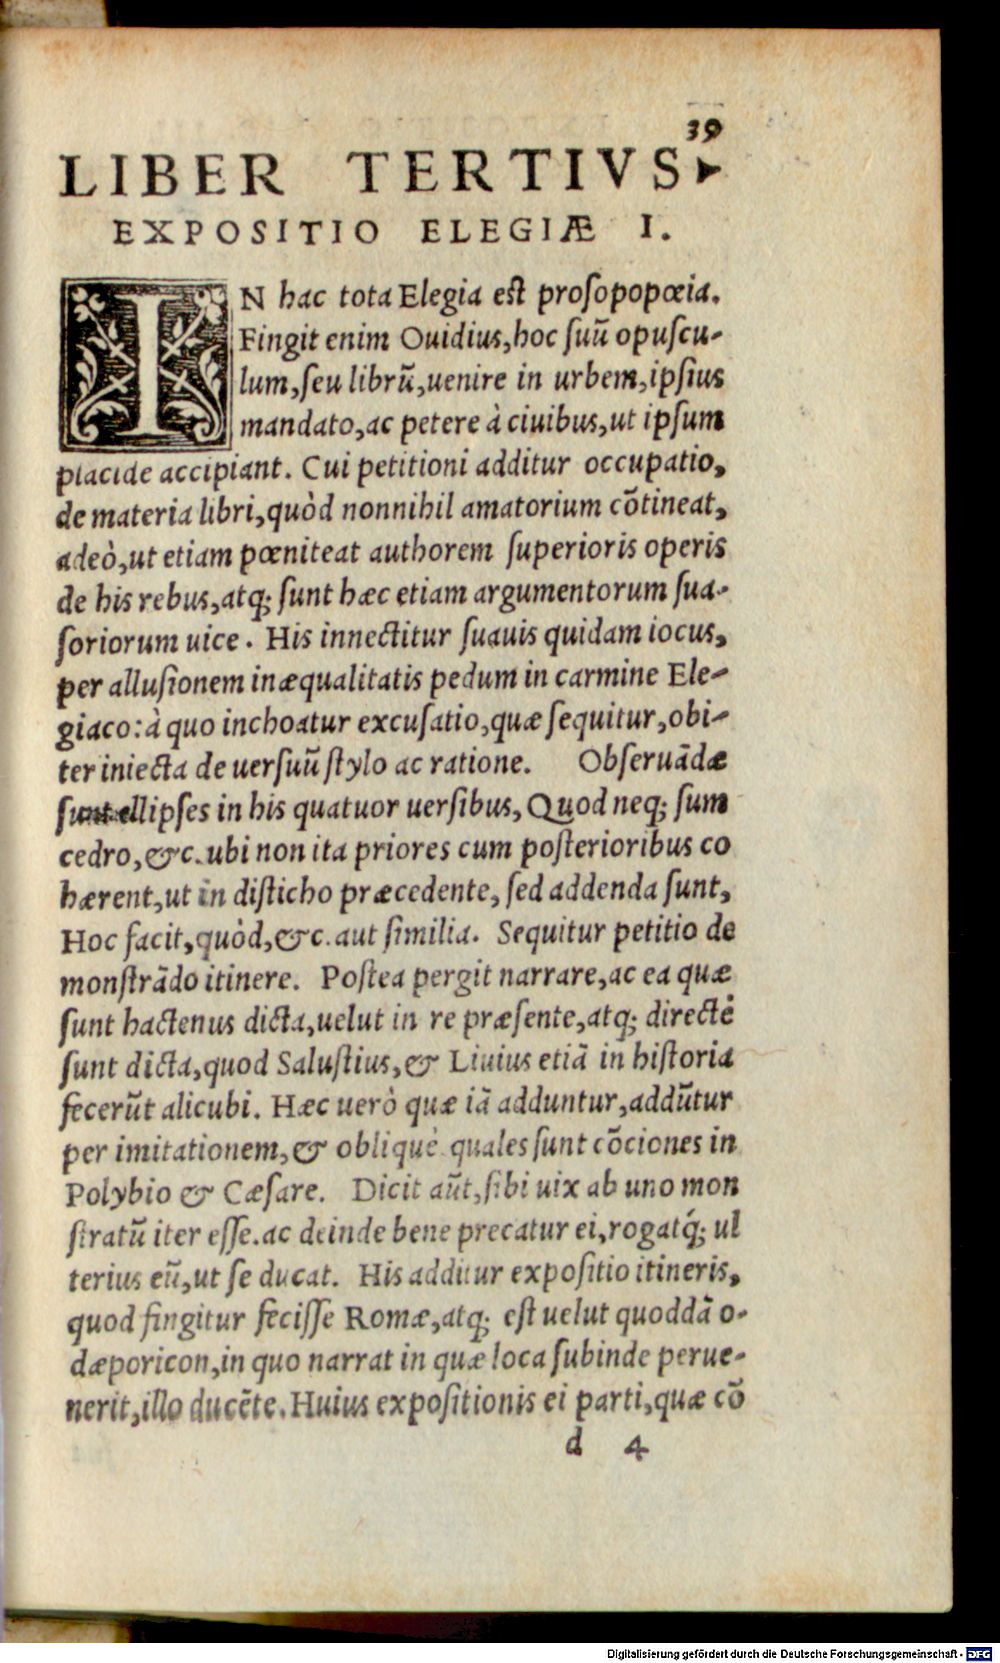 39
LIBER TERTIVS
EXPOSITIO ELEGIÆ I.
IN hac tota Elegia est prosopopœia.
Fingit enim Ouidius, hoc suũ opuscu-
lum, seu librũ, uenire in urbem, ipsius
mandato, ac petere à ciuibus, ut ipsum
placide accipiant. Cui petitioni additur occupatio,
de materia libri, quòd nonnihil amatorium cõtineat,
adeò, ut etiam pœniteat authorem superioris operis
de his rebus, atq; sunt hæc etiam argumentorum sua-
soriorum uice. His innectitur suauis quidam iocus,
per allusionem inæqualitatis pedum in carmine Ele-
giaco: à quo inchoatur excusatio, quæ sequitur, obi-
ter iniecta de uersuũ stylo ac ratione. Obseruãdæ
sunt ellipses in his quatuor uersibus, Quod neq; sum
cedro, &c. ubi non ita priores cum posterioribus co
hærent, ut in disticho præcedente, sed addenda sunt,
Hoc facit, quòd, &c. aut similia. Sequitur petitio de
monstrãdo itinere. Postea pergit narrare, ac ea quæ
sunt hactenus dicta, uelut in re præsente, atq; directè
sunt dicta, quod Salustius, & Liuius etiã in historia
fecerũt alicubi. Hæc uerò quæ iã adduntur, addũtur
per imitationem, & obliquè quales sunt cõciones in
Polybio & Cæsare. Dicit aũt, sibi uix ab uno mon
stratũ iter esse. ac deinde bene precatur ei, rogatq́; ul
terius eũ, ut se ducat. His additur expositio itineris,
quod fingitur fecisse Romæ, atq; est uelut quoddã o-
dæporicon, in quo narrat in quæ loca subinde perue-
nerit, illo ducẽte. Huius expositionis ei parti, quæ cõ
d 4
Digitalisierung gefördert durch die Deutsche Forschungsgemeinschaft - DFG